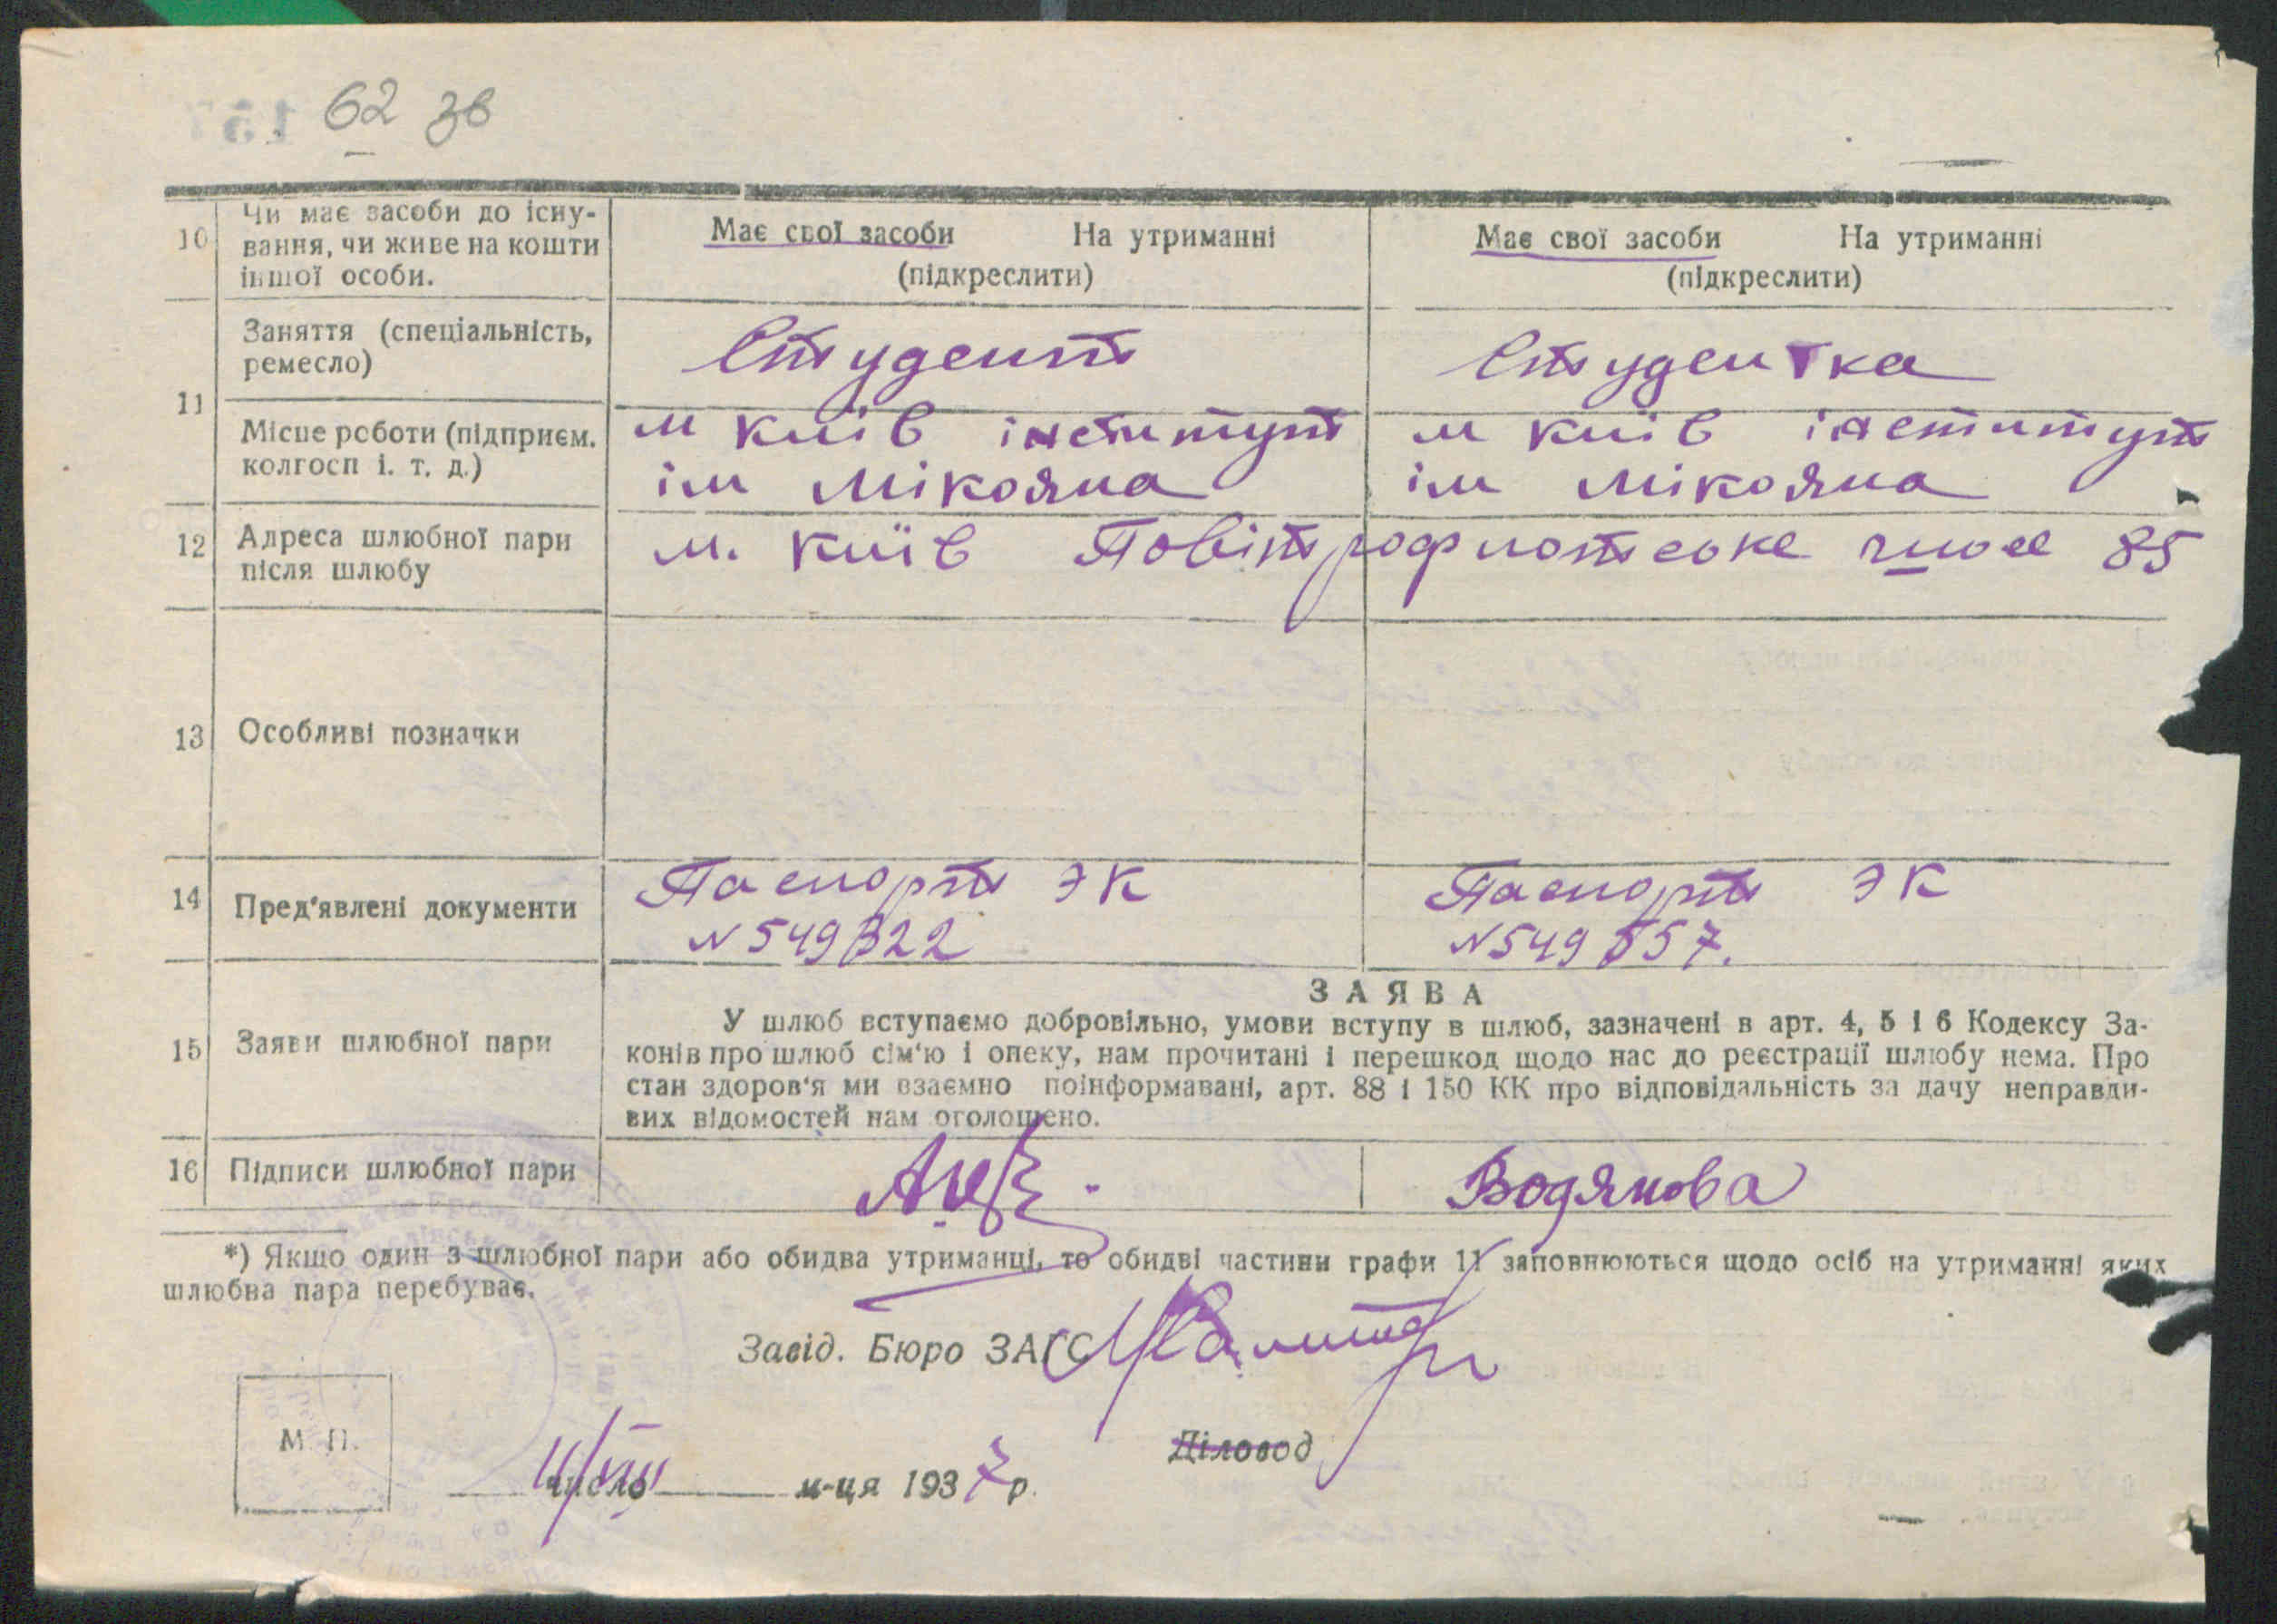 62 зв
10 Чи має засоби до існу-
вання, чи живе на кошти
іншої особи.
Має свої засоби На утриманні
(підкреслити)
Має свої засоби На утриманні
(підкреслити)
11 Заняття (спеціальність,
ремесло)
Студент
Студентка
Місце роботи (підприєм.
колгосп і. т. д.)
м київ інститут
ім Мікояна
м київ інститут
ім Мікояна
12 Адреса шлюбної пари
після шлюбу
м. київ Повітрофлотське шосе 85
13 Особливі позначки
14 Пред'явлені документи
Паспорт ЭК
N 549322
Паспорт ЭК
N 549557.
15 Заяви шлюбної пари
ЗАЯВА
У шлюб вступаємо добровільно, умови вступу в шлюб, зазначені в арт. 4, 5 і 6 Кодексу За-
конів про шлюб сім'ю і опеку, нам прочитані і перешкод щодо нас до реєстрації шлюбу нема. Про
стан здоров'я ми взаємно поінформавані, арт. 88 і 150 КК про відповідальність за дачу неправди-
вих відомостей нам оголошено.
16 Підписи шлюбної пари
Водянова
*) Якщо один з шлюбної пари або обидва утриманці, то обидві частини графи 11 заповнюються щодо осіб на утриманні яких
шлюбна пара перебуває.
Завід. Бюро ЗАГС
М. П.
Діловод
11/VIII число м-ця 1937 р.